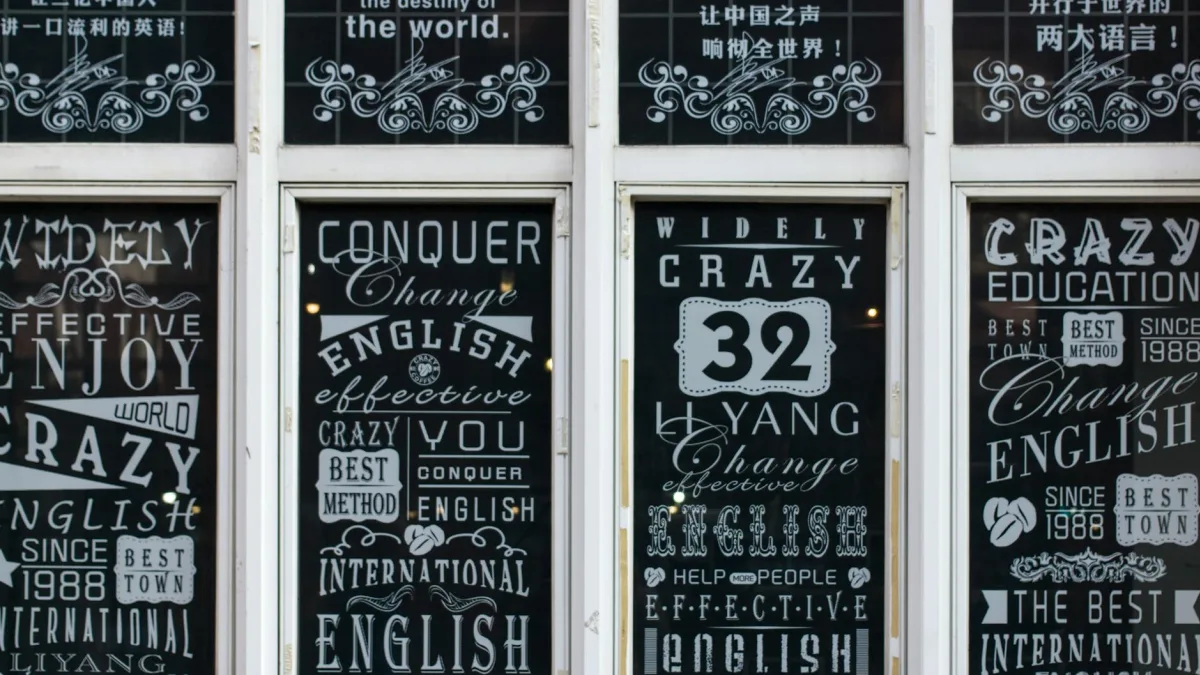 让三亿中国人
讲一口流利的英语!
the destiny of
the world.
让中国之声
响彻全世界！
并行于世界的
两大语言！
WIDELY
EFFECTIVE
ENJOY
WORLD
CRAZY
ENGLISH
SINCE
1988
BEST
TOWN
INTERNATIONAL
LIYANG
CONQUER
Change
ENGLISH
CRAZY
COFFEE
effective
CRAZY
BEST
METHOD
YOU
CONQUER
ENGLISH
INTERNATIONAL
ENGLISH
WIDELY
CRAZY
32
LI YANG
Change
effective
ENGLISH
HELP MORE PEOPLE
E·F·F·E·C·T·I·V·E
ENGLISH
CRAZY
EDUCATION
BEST
TOWN
BEST
METHOD
SINCE
1988
Change
ENGLISH
SINCE
1988
BEST
TOWN
THE BEST
INTERNATIONAL